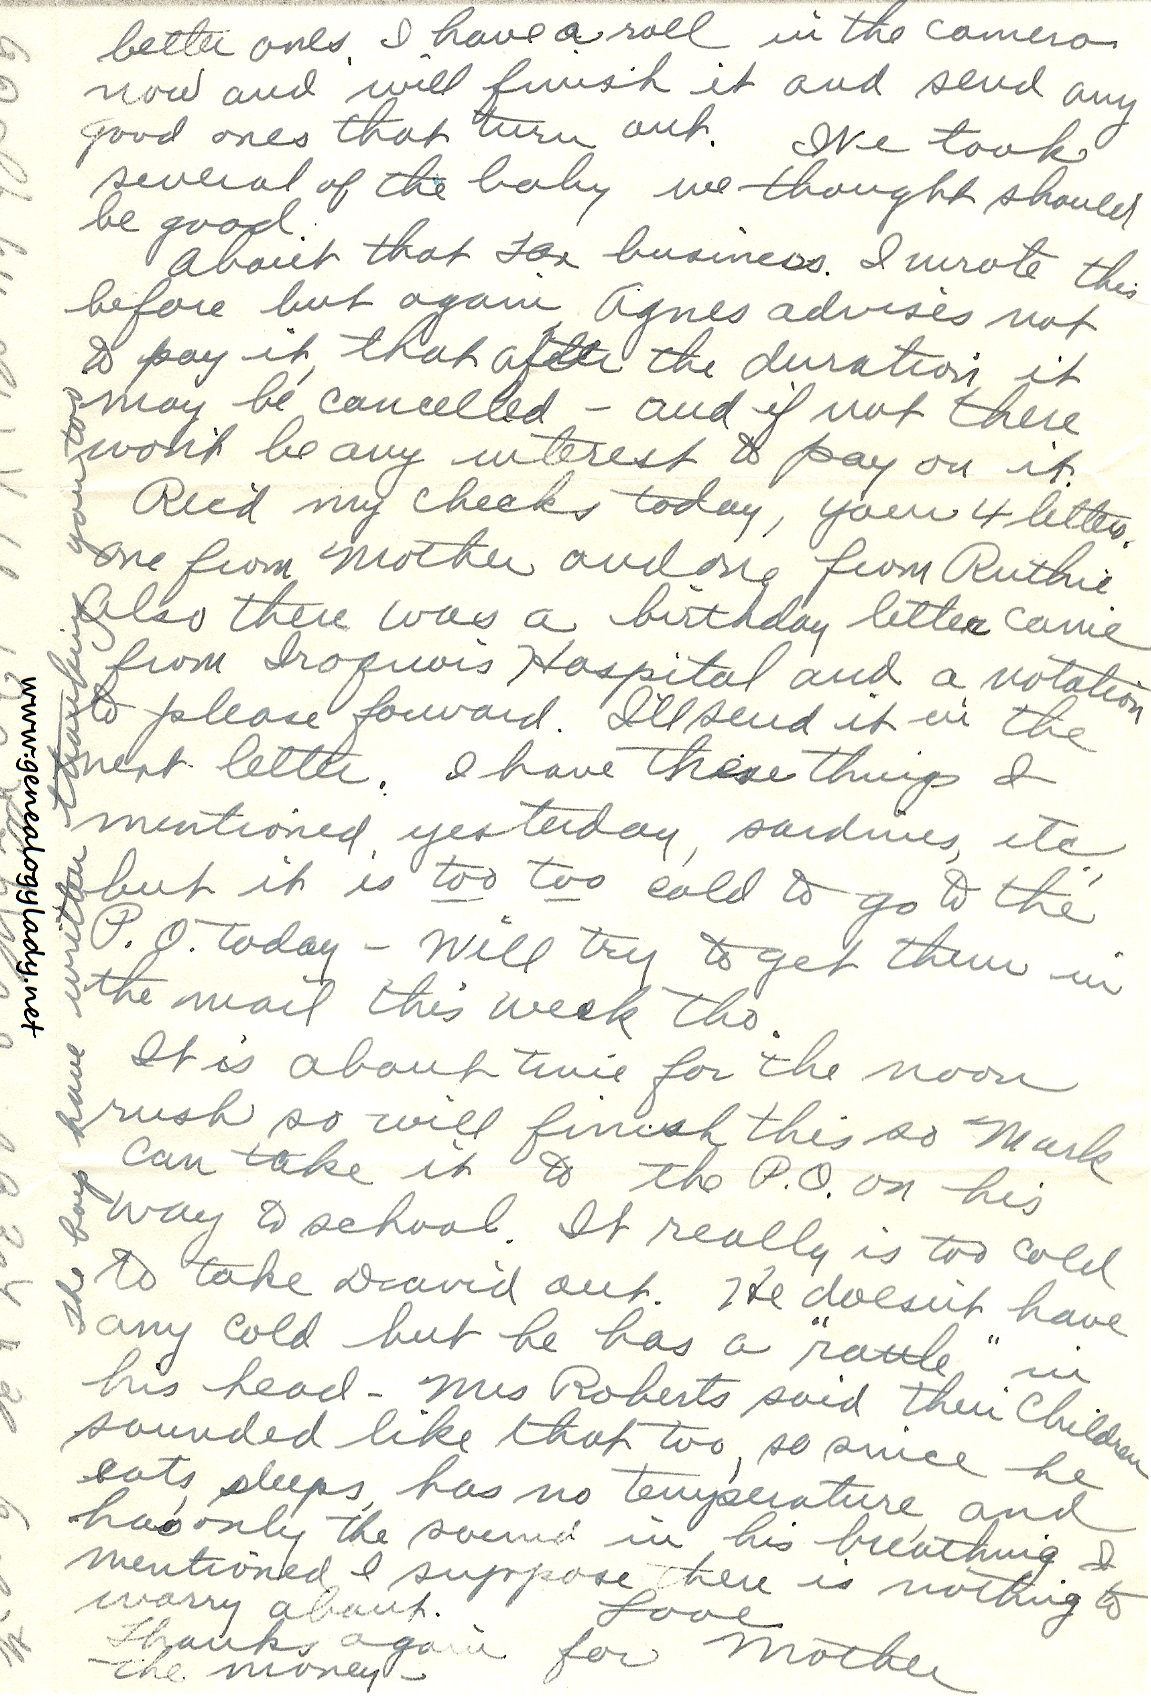 better ones. I have a roll in the camera
now and will finish it and send any
good ones that turn out. We took
several of the baby we thought should
be good.
About that tax business. I wrote this
before but again Agnes advises not
to pay it, that after the duration it
may be cancelled – and if not there
won't be any interest to pay on it.
Rec'd my checks today, your 4 letters.
one from Mother and one from Ruthie
Also there was a birthday letter came
from Iroquois Hospital and a notation
to please forward. I'll send it in the
next letter. I have these things I
mentioned yesterday, sardines, etc,
but it is too too cold to go to the
P.O. today – Will try to get them in
the mail this week tho.
It is about time for the noon
rush so will finish this so Mark
can take it to the P.O. on his
way to school. It really is too cold
to take David out. He doesn't have
any cold but he has a "rattle" in
his head – Mrs Roberts said their children
sounded like that too, so since he
eats, sleeps, has no temperature and
has only the sound in his breathing I
mentioned I suppose there is nothing to
worry about. Love
Thanks again for Mother
the money –
The boys have written thanking you too
www.genealogylady.net